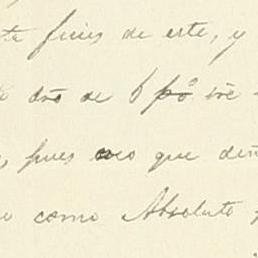 te fines de este, y
dro de 6 p%
pues veo que de
como Absoluto